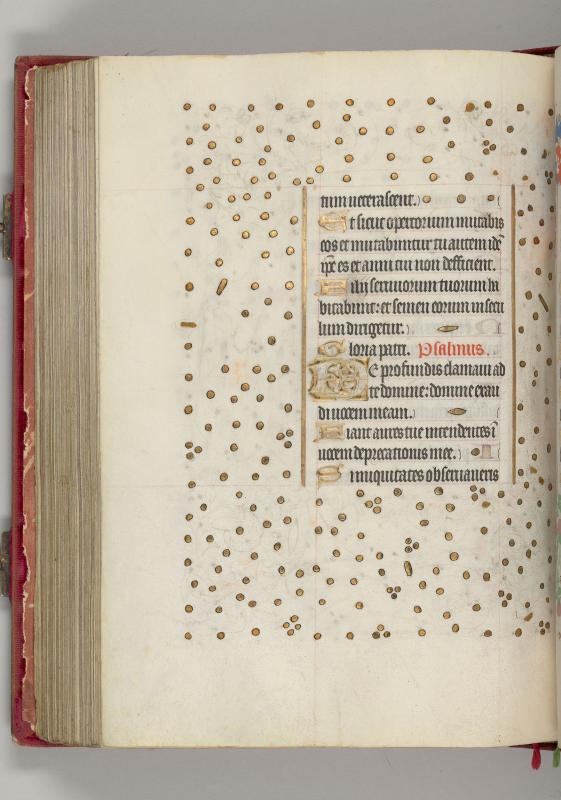 tum veterascent.
Et sicut opertorium mutabis
eos et mutabuntur tu autem idē
ipse es et anni tui non defficient.
Filij servorum tuorum ha
bitabunt: et semen eorum in secu
lum dirigetur.
Gloria patri. Psalmus.
De profundis clamavi ad
te domine: domine exau
di vocem meam.
Fiant aures tue intendentes ī
vocem deprecationis mee.
Si iniquitates observaveris